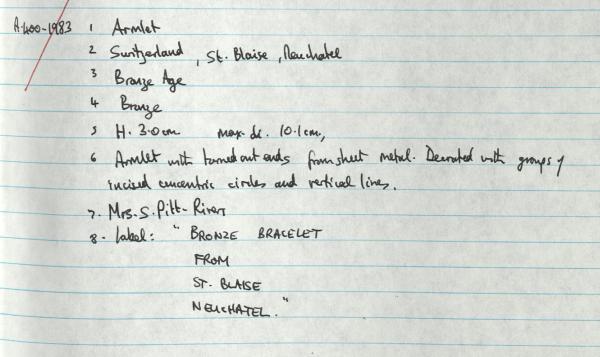 A.400-1983 1 Armlet
2 Switzerland, St. Blaise, Neuchatel
3 Bronze Age
4 Bronze
5 H. 3.0cm max. di. 10.1cm,
6 Armlet with turned out ends from sheet metal. Decorated with groups of
incised concentric circles and vertical lines.
7. Mrs. S. Pitt-Rivers
8. Label: "BRONZE BRACELET
FROM
ST. BLAISE
NEUCHATEL."